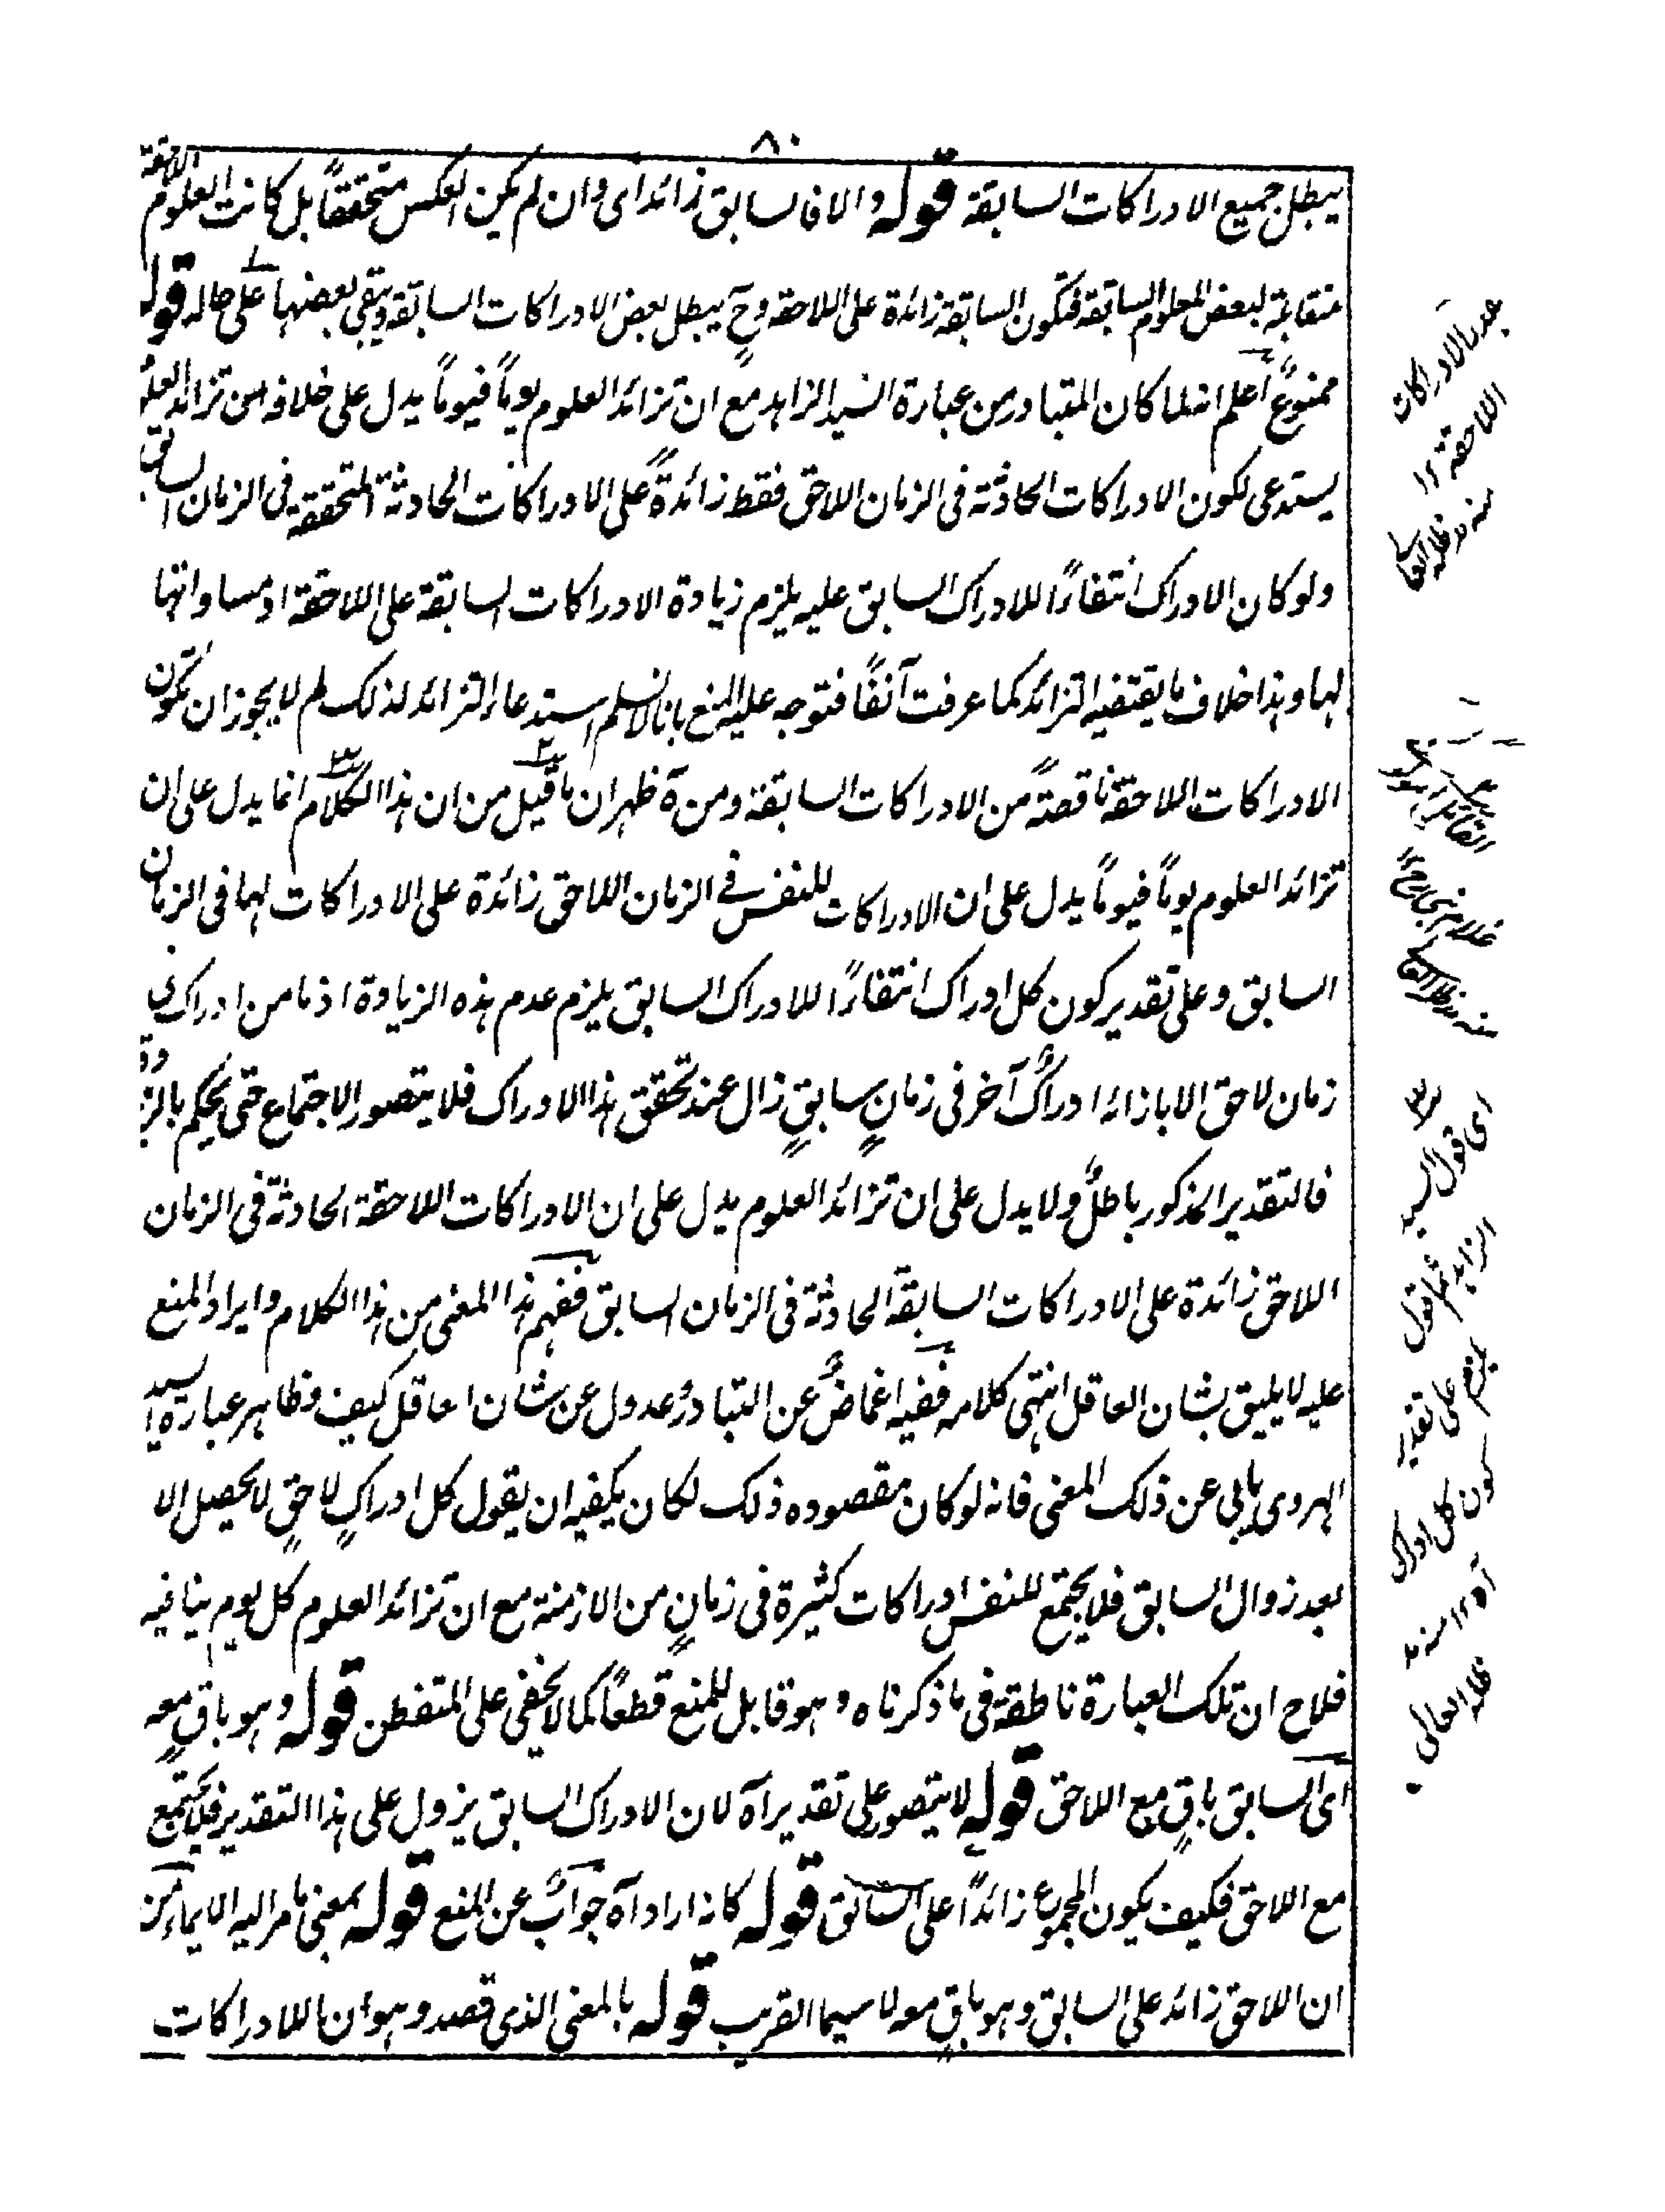 ٨٠
يبطل جميع الادراكات السابقة قوله والا فالسابق زائد اى وان لم يكن العكس متحققاً بل كانت العلوم اللاحقة
متقابلة لبعض العلوم السابقة فتكون السابقة زائدة على اللاحقة وح يبطل بعض الادراكات السابقة ويبقى بعضها على حاله قوله
ممنوعٌ اعلم انه لما كان المتبادر من عبارة السيد الزاهد مع ان تزائد العلوم يوماً فيوماً يدل على خلافه ان تزائد العلوم
يستدعى لكون الادراكات الحادثة فى الزمان اللاحق فقط زائدةً على الادراكات الحادثة المتحققة فى الزمان السابق
ولو كان الادراك انتفاءً للادراك السابق عليه يلزم زيادة الادراكات السابقة على اللاحقة او مساواتها
لها وهذا خلاف ما يقتضيه التزائد كما عرفت آنفاً فتوجه عليه المنع بانا لا نسلم استدعاء التزائد لذلك لم لا يجوز ان تكون
الادراكات اللاحقة ناقصةً من الادراكات السابقة ومن ثَم ظهر ان ما قيل من ان هذا الكلام انما يدل على ان
تزائد العلوم يوماً فيوماً يدل على ان الادراكات للنفس فى الزمان اللاحق زائدة على الادراكات لها فى الزمان
السابق وعلى تقدير كون كل ادراك انتفاءً للادراك السابق يلزم عدم هذه الزيادة اذ ما من ادراك فى
زمان لاحق الا بازائه ادراكٌ آخر فى زمانٍ سابقٍ زال عند تحقق هذا الادراك فلا يتصور الاجتماع حتى يحكم بالزيادة
فالتقدير المذكور باطلٌ ولا يدل على ان تزائد العلوم يدل على ان الادراكات اللاحقة الحادثة فى الزمان
اللاحق زائدة على الادراكات السابقة الحادثة فى الزمان السابق ففهم هذا المعنى من هذا الكلام وايراد المنع
عليه لا يليق بشان العاقل انتهى كلامه ففيه اغماضٌ عن التبادر وعدول عن شان العاقل كيف وظاهر عبارة السيد
الهروى يابى عن ذلك المعنى فانه لو كان مقصوده ذلك لكان يكفيه ان يقول كل ادراكٍ لاحقٍ لا يحصل الا
بعد زوال السابق فلا يجتمع للنفس ادراكات كثيرة فى زمانٍ من الازمنة مع ان تزائد العلوم كل يوم ينافيه
فلاح ان تلك العبارة ناطقة فى ما ذكرناه وهو قابل للمنع قطعاً كما لا يخفى على المتفطن قوله وهو باقٍ معه
اى السابق باقٍ مع اللاحق قوله لا يتصور على تقدير آه لان الادراك السابق يزول على هذا التقدير فلا يجتمع
مع اللاحق فكيف يكون المجموع زائداً على السابق قوله كانه اراد آه جوابٌ عن المنع قوله بمعنى ما مر اليه الايماء من
ان اللاحق زائد على السابق وهو باقٍ معه لا سيما القريب قوله بالمعنى الذى قصد وهو ان للادراكات
بالادراكات
اللاحقة ١٢
منه مدظله العالى
القائل
غلام نبى
منه مدظله العالى
اى قول السيد
الزاهد ثم قوله
يلزم على تقدير
كون كل ادراك
آه ١٢ منه
مدظله العالى